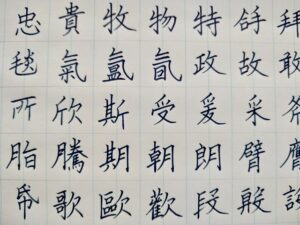 忠貴牧物特拜
毯氣氳政故敢
所欣斯受爰采
脂騰期朝朗臂膺
歌歐歡段